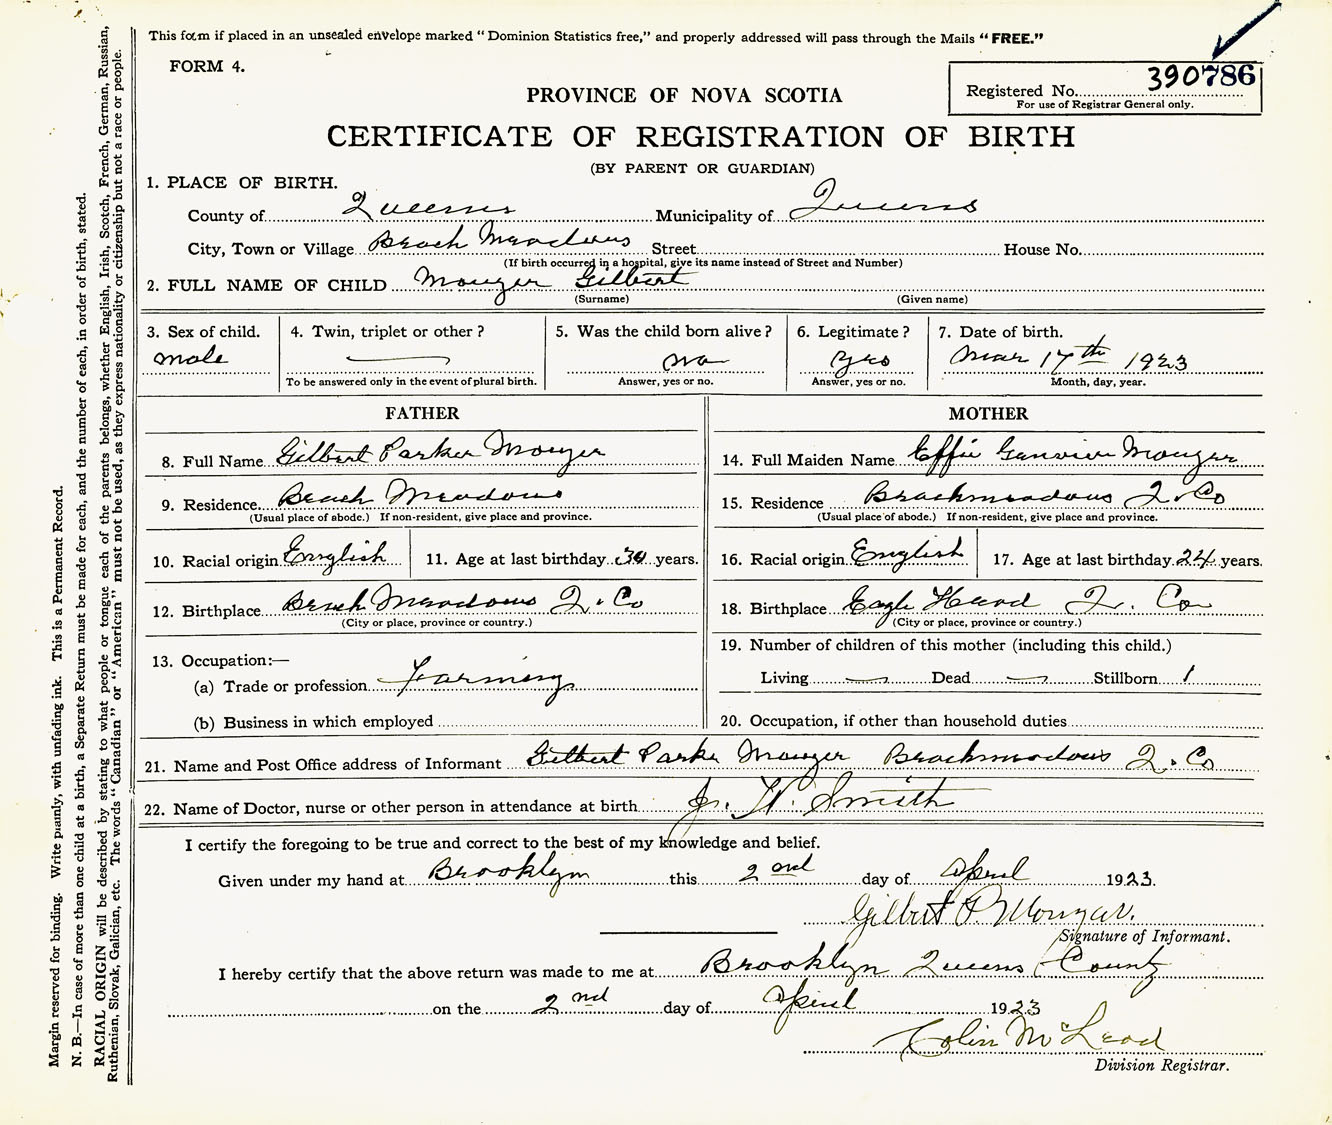 This form if placed in an unsealed envelope marked "Dominion Statistics free," and properly addressed will pass through the Mails "FREE."
FORM 4.
390786
Registered No.
For use of Registrar General only.
PROVINCE OF NOVA SCOTIA
CERTIFICATE OF REGISTRATION OF BIRTH
(BY PARENT OR GUARDIAN)
1. PLACE OF BIRTH.
County of Queens Municipality of Queens
City, Town or Village Beach Meadows Street House No.
(If birth occurred in a hospital, give its name instead of Street and Number)
2. FULL NAME OF CHILD Mouzer Gilbert
(Surname) (Given name)
3. Sex of child. 4. Twin, triplet or other? 5. Was the child born alive? 6. Legitimate? 7. Date of birth.
male no yes Mar 17th 1923
To be answered only in the event of plural birth. Answer, yes or no. Answer, yes or no. Month, day, year.
FATHER MOTHER
8. Full Name Gilbert Parker Mouzer 14. Full Maiden Name Effie Mouzer
9. Residence Beach Meadows 15. Residence Beachmeadows Q. Co
(Usual place of abode.) If non-resident, give place and province. (Usual place of abode.) If non-resident, give place and province.
10. Racial origin English 11. Age at last birthday 34 years. 16. Racial origin English 17. Age at last birthday 24 years.
12. Birthplace Beach Meadows Q. Co 18. Birthplace Eagle Head Q. Co
(City or place, province or country.) (City or place, province or country.)
19. Number of children of this mother (including this child.)
13. Occupation:—
(a) Trade or profession Farming Living Dead Stillborn 1
(b) Business in which employed 20. Occupation, if other than household duties
21. Name and Post Office address of Informant Gilbert Parker Mouzer Beachmeadows Q. Co
22. Name of Doctor, nurse or other person in attendance at birth J. W. Smith
I certify the foregoing to be true and correct to the best of my knowledge and belief.
Given under my hand at Brooklyn this 2nd day of April 1923.
Gilbert P. Mouzar.
Signature of Informant.
I hereby certify that the above return was made to me at Brooklyn Queens County
on the 2nd day of April 1923
Colin McLeod
Division Registrar.
Margin reserved for binding. Write plainly, with unfading ink. This is a Permanent Record.
N. B.—In case of more than one child at a birth, a Separate Return must be made for each, and the number of each, in order of birth, stated.
RACIAL ORIGIN will be described by stating to what people or tongue each of the parents belongs, whether English, Irish, Scotch, French, German, Russian,
Ruthenian, Slovak, Galician, etc. The words "Canadian" or "American" must not be used, as they express nationality or citizenship but not a race or people.